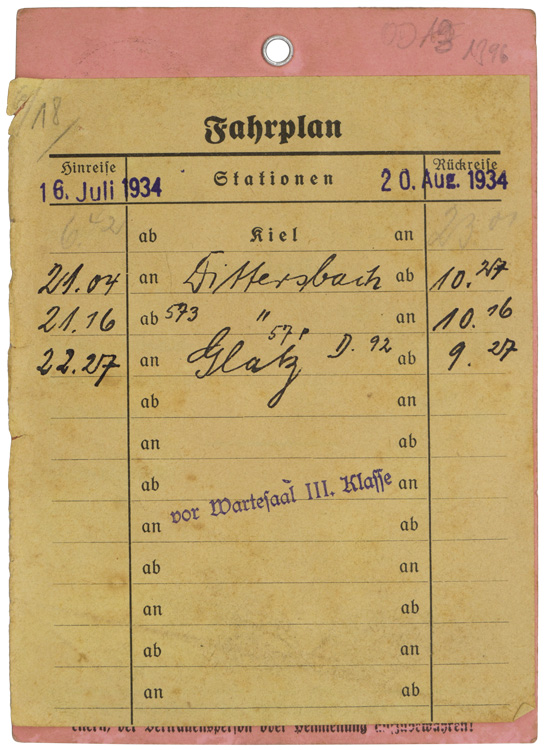 1396
18
Fahrplan
Hinreise Stationen Rückreise
16. Juli 1934 20. Aug. 1934
ab Kiel an
21.04 an Dittersbach ab 10.27
21.16 ab 573 " an 10.16
22.27 an Glatz 571 D. 92 ab 9.27
ab an
an ab
ab an
vor Wartesaal III. Klasse
an ab
ab an
an ab
ab an
an ab
der Vertrauensperson oder